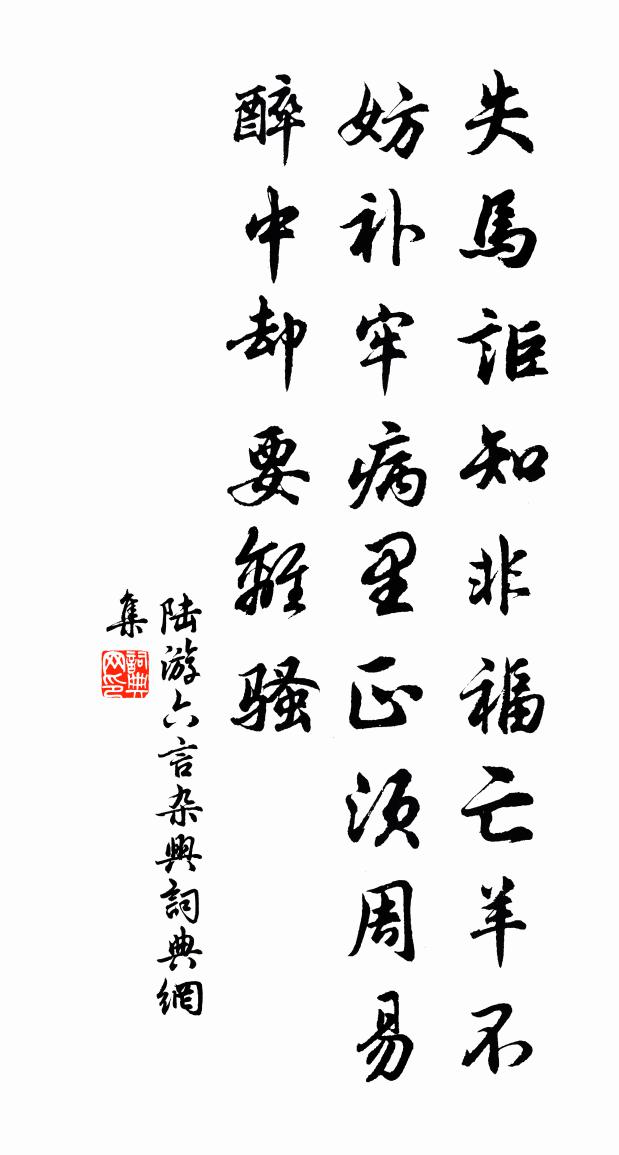 失馬詎知非福亡羊不
妨补牢病里正须周易
醉中却要離骚
陆游六言杂興詞典網
集
詞典
网印